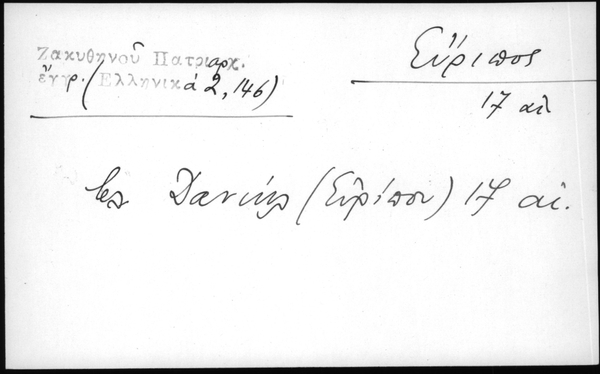 Ζακυθηνοῦ Πατριαρχ.
ἔγγρ. (Ἑλληνικά 2, 146)
Εὔριπος
17 αἰ
Δανιήλ (Εὐρίπου) 17 αἰ.